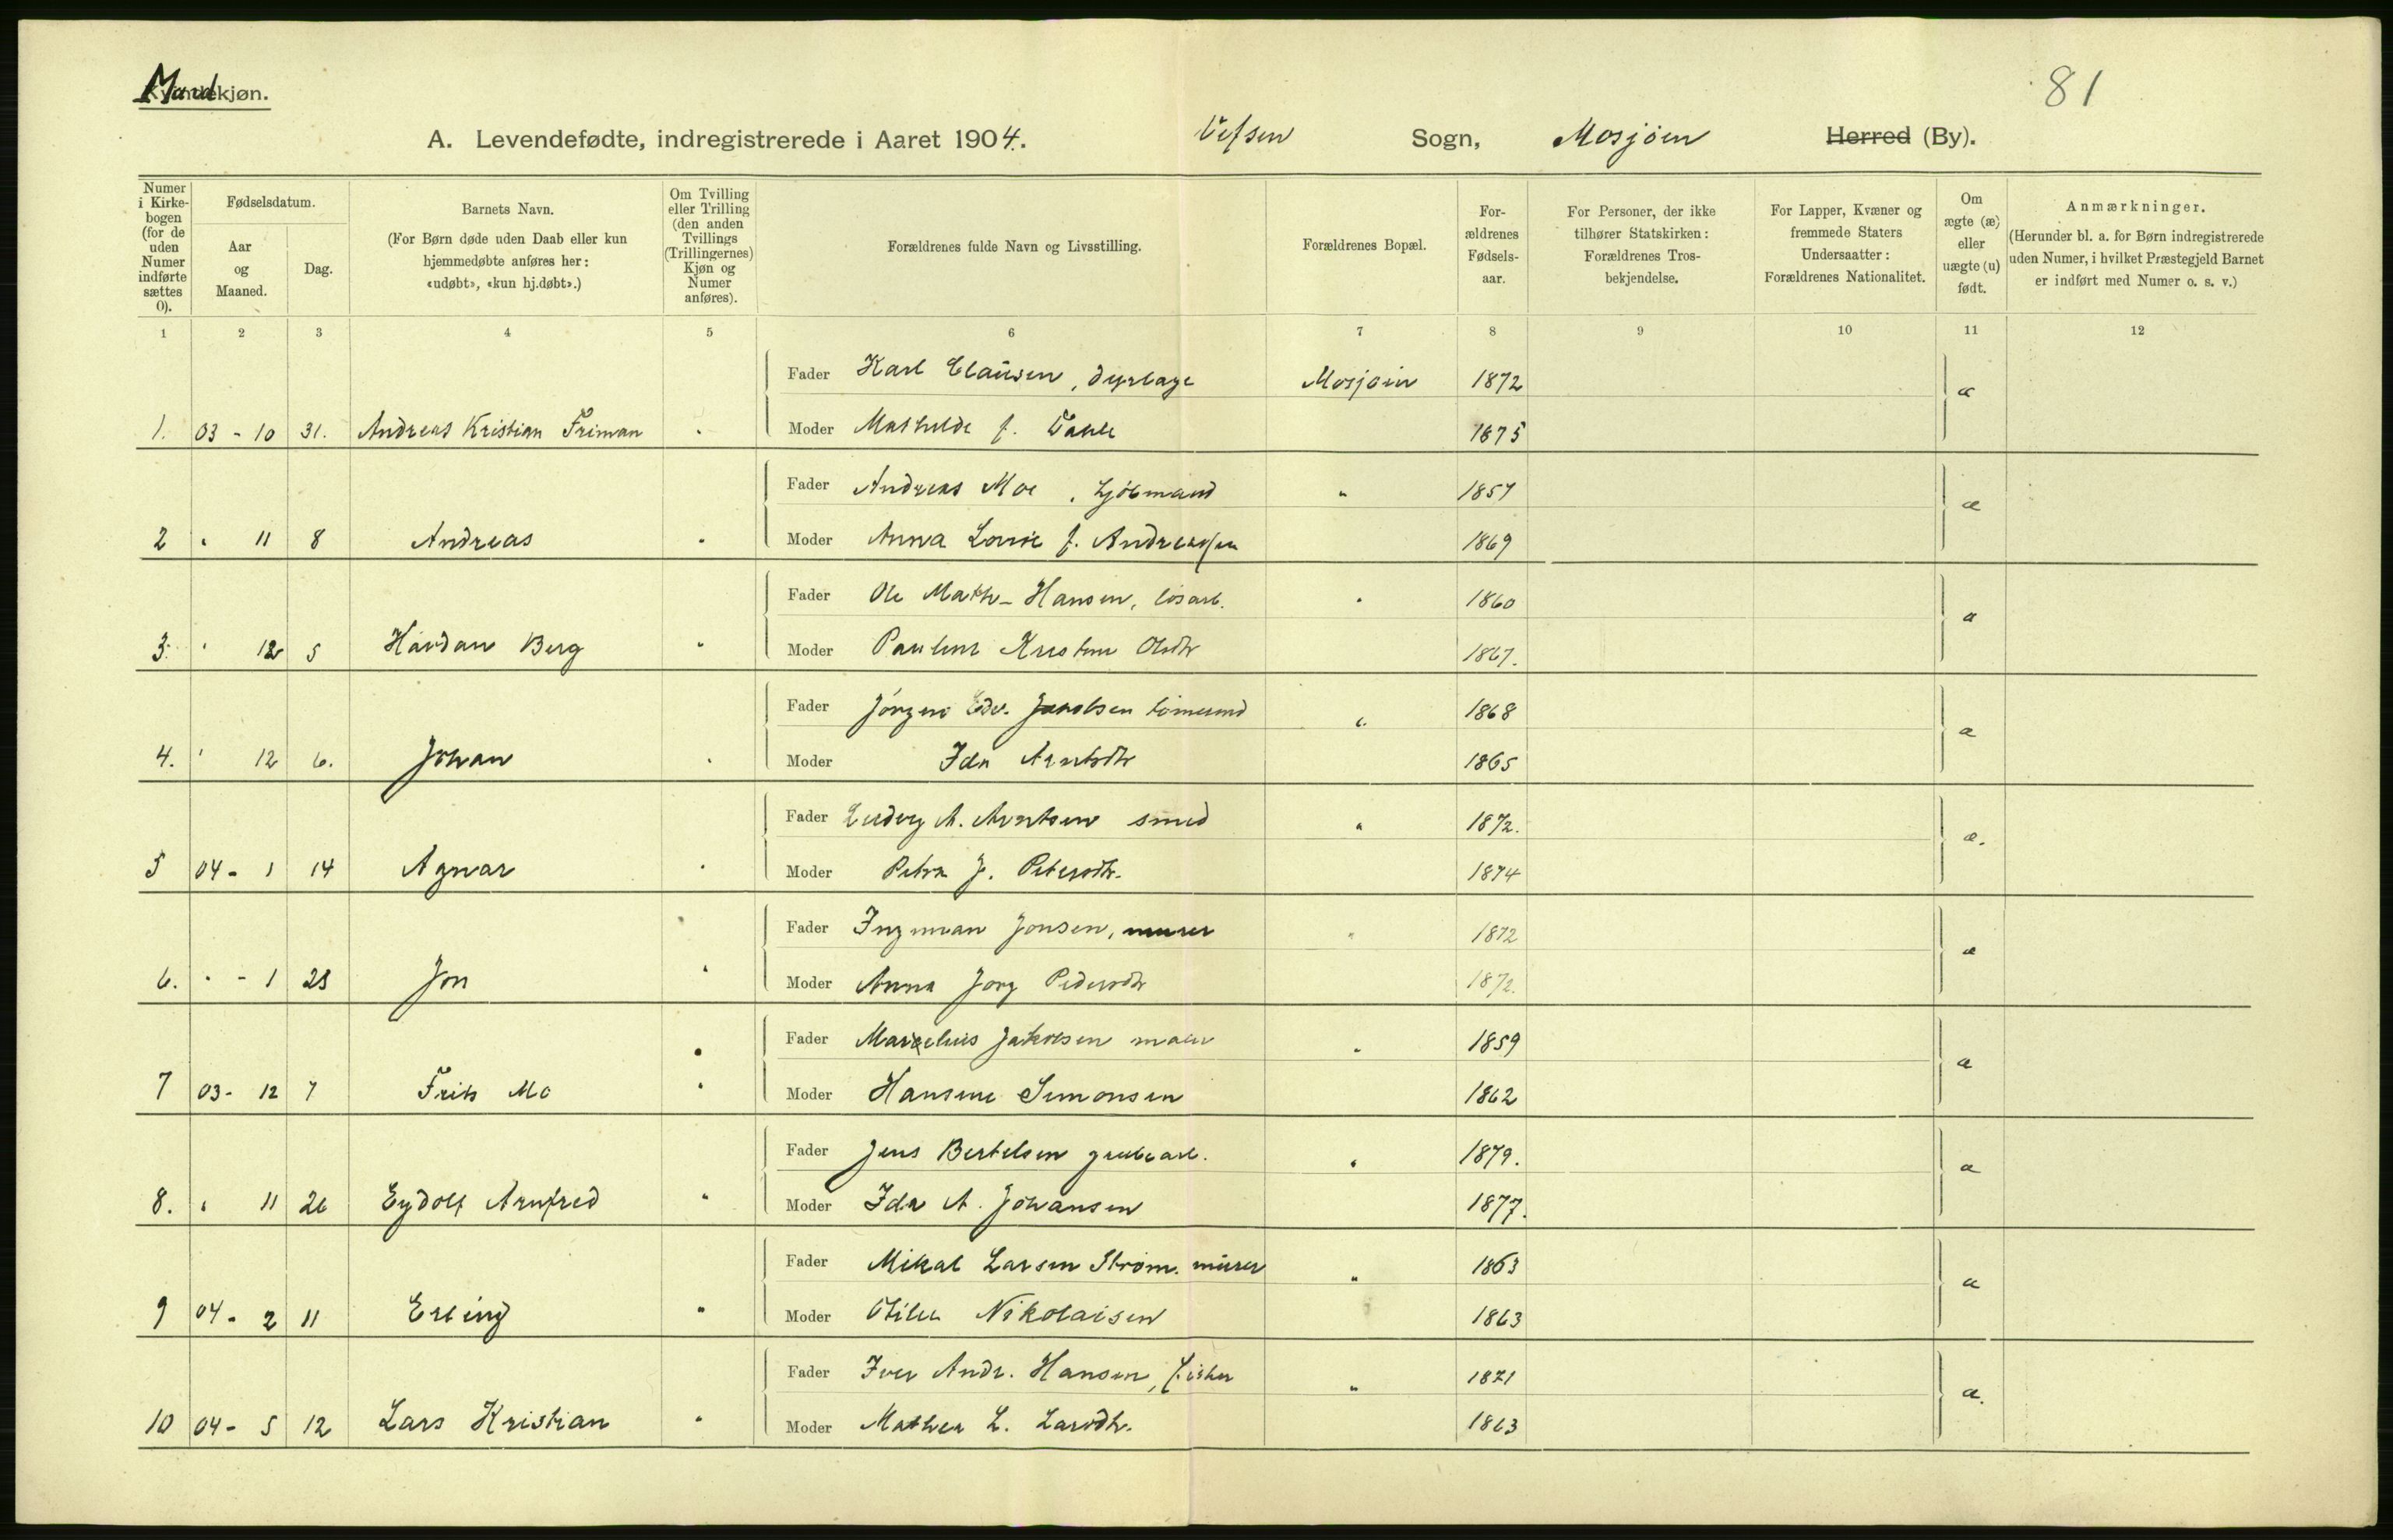 81
Mandkjøn.
A. Levendefødte, indregistrerede i Aaret 1904. Vefsen Sogn, Mosjøen Herred (By).
Numer i Kirkebogen (for de uden Numer indførte sættes 0).
Fødselsdatum.
Aar og Maaned.
Dag.
Barnets Navn.
(For Børn døde uden Daab eller kun hjemmedøbte anføres her: «udøbt», «kun hj.døbt».)
Om Tvilling eller Trilling (den anden Tvillings (Trillingernes) Kjøn og Numer anføres).
Forældrenes fulde Navn og Livsstilling.
Forældrenes Bopæl.
Forældrenes Fødselsaar.
For Personer, der ikke tilhører Statskirken: Forældrenes Trosbekjendelse.
For Lapper, Kvæner og fremmede Staters Undersaatter: Forældrenes Nationalitet.
Om ægte (æ) eller uægte (u) født.
Anmærkninger.
(Herunder bl. a. for Børn indregistrerede uden Numer, i hvilket Præstegjeld Barnet er indført med Numer o. s. v.)
1 2 3 4 5 6 7 8 9 10 11 12
Fader Karl Clausen, Mosjøen 1872 æ
1. 03 - 10 31. Andreas Kristian Friman Moder Mathilde f. 1875
Fader Andreas Moe, kjøbmand " 1857 æ
2 " 11 8 Andreas " Moder Anna Lovise f. Andreassen 1869
Fader Ole Math- Hansen, løsarb. " 1860 æ
3. " 12 5 Havdan Berg " Moder Pauline Kristine Olsdtr 1867.
Fader Jörgen Edv. Jakobsen " 1868 æ
4. " 12 6. Johan " Moder Ida Arntsdtr 1865
Fader Ludvig A. Arntsen smed " 1872. æ.
5 04 - 1 14 Agnar " Moder Petra J. Petersdtr. 1874
Fader Ingman Jonsen, murer " 1872 æ
6. " - 1 23 Jon " Moder Anna Jorg Pedersdtr 1872.
Fader Marselius Jakobsen maler " 1859 æ
7 03 - 12 7 Frits Mo " Moder Hansine Simonsen 1862
Fader Jens Bertelsen grubearb. " 1879. æ
8. " 11 26 Eydolf Arnfred " Moder Ida A. Johansen 1877.
Fader Mikal Larsen Strøm. murer " 1863 æ
9 04 - 2 11 Erling " Moder Otilie Nikolaisen 1863
Fader Iver Andr. Hansen, fisker " 1871 æ.
10 04 - 5 12 Lars Kristian " Moder Mathea L. Larsdtr. 1863